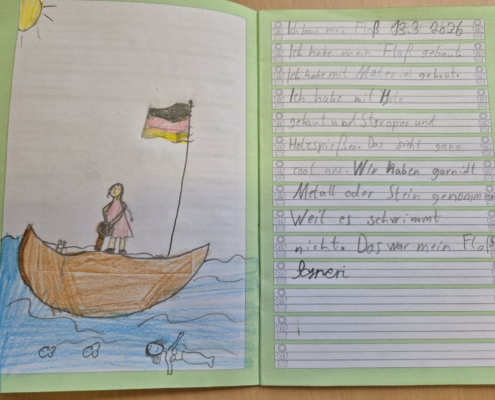 Ich baue mein Floß 13.3.2026
Ich habe mein Floß gebaut.
Ich habe mit Material gebaut.
Ich habe mit Holz
gebaut und Styroper und
Holzspießen. Das sieht ganz
cool aus. Wir haben garnidt
Metall oder Stein genommen
Weil es schwimmt
nicht. Das war mein Floß